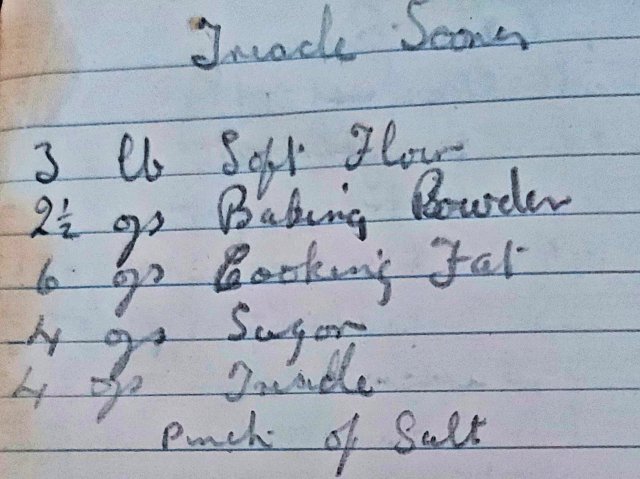 Treacle Scones
3 lb Soft Flour
2½ ozs Baking Powder
6 ozs Cooking Fat
4 ozs Sugar
4 ozs Treacle
Pinch of Salt